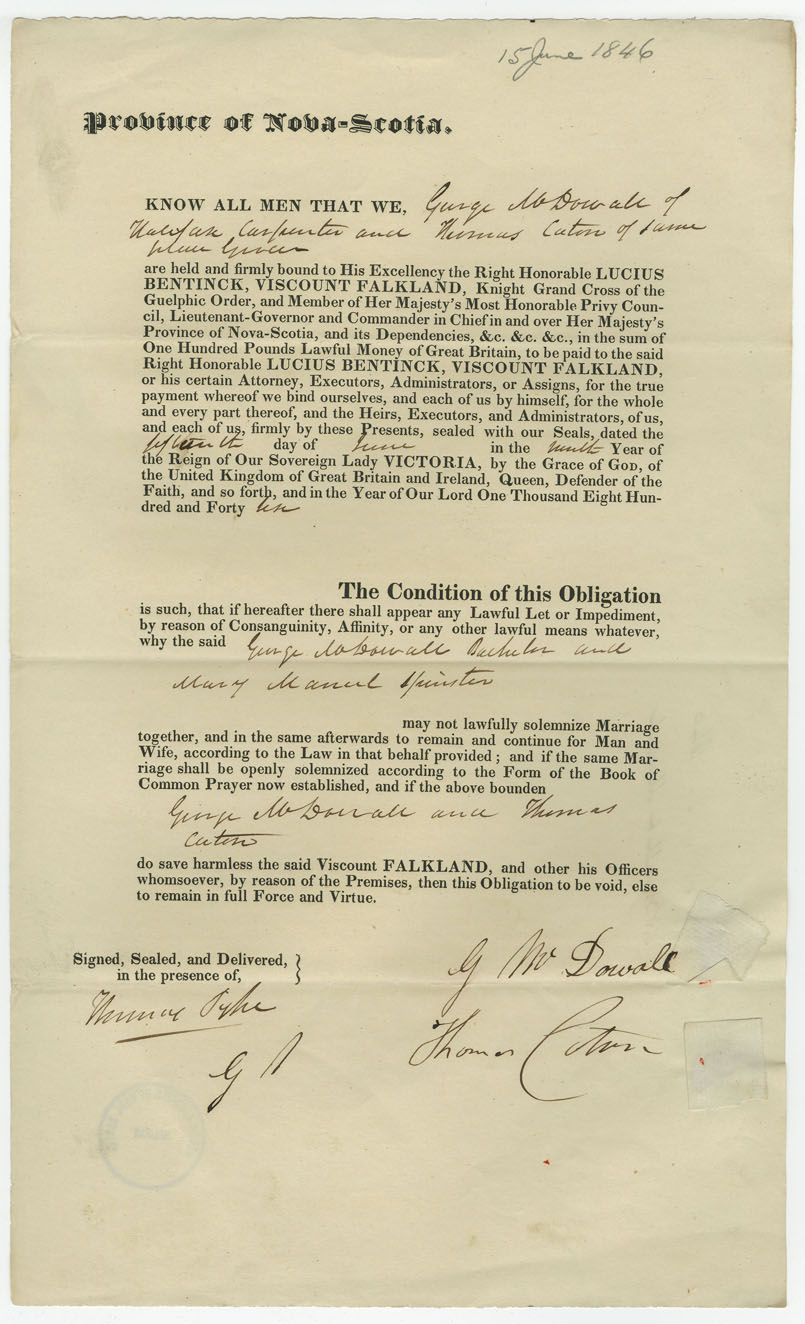 15 June 1846
Province of Nova-Scotia.
KNOW ALL MEN THAT WE, George McDowall of
Halifax Carpenter and Thomas Caton of same
place Grocer
are held and firmly bound to His Excellency the Right Honorable LUCIUS
BENTINCK, VISCOUNT FALKLAND, Knight Grand Cross of the
Guelphic Order, and Member of Her Majesty's Most Honorable Privy Coun-
cil, Lieutenant-Governor and Commander in Chief in and over Her Majesty's
Province of Nova-Scotia, and its Dependencies, &c. &c. &c., in the sum of
One Hundred Pounds Lawful Money of Great Britain, to be paid to the said
Right Honorable LUCIUS BENTINCK, VISCOUNT FALKLAND,
or his certain Attorney, Executors, Administrators, or Assigns, for the true
payment whereof we bind ourselves, and each of us by himself, for the whole
and every part thereof, and the Heirs, Executors, and Administrators, of us,
and each of us, firmly by these Presents, sealed with our Seals, dated the
fifteenth day of June in the ninth Year of
the Reign of Our Sovereign Lady VICTORIA, by the Grace of GOD, of
the United Kingdom of Great Britain and Ireland, Queen, Defender of the
Faith, and so forth, and in the Year of Our Lord One Thousand Eight Hun-
dred and Forty six
The Condition of this Obligation
is such, that if hereafter there shall appear any Lawful Let or Impediment,
by reason of Consanguinity, Affinity, or any other lawful means whatever,
why the said George McDowall Bachelor and
Mary Spinster
may not lawfully solemnize Marriage
together, and in the same afterwards to remain and continue for Man and
Wife, according to the Law in that behalf provided; and if the same Mar-
riage shall be openly solemnized according to the Form of the Book of
Common Prayer now established, and if the above bounden
George McDowall and Thomas
Caton
do save harmless the said Viscount FALKLAND, and other his Officers
whomsoever, by reason of the Premises, then this Obligation to be void, else
to remain in full Force and Virtue.
Signed, Sealed, and Delivered, }
in the presence of,
G McDowall
Thomas Pyke
Thomas Caton